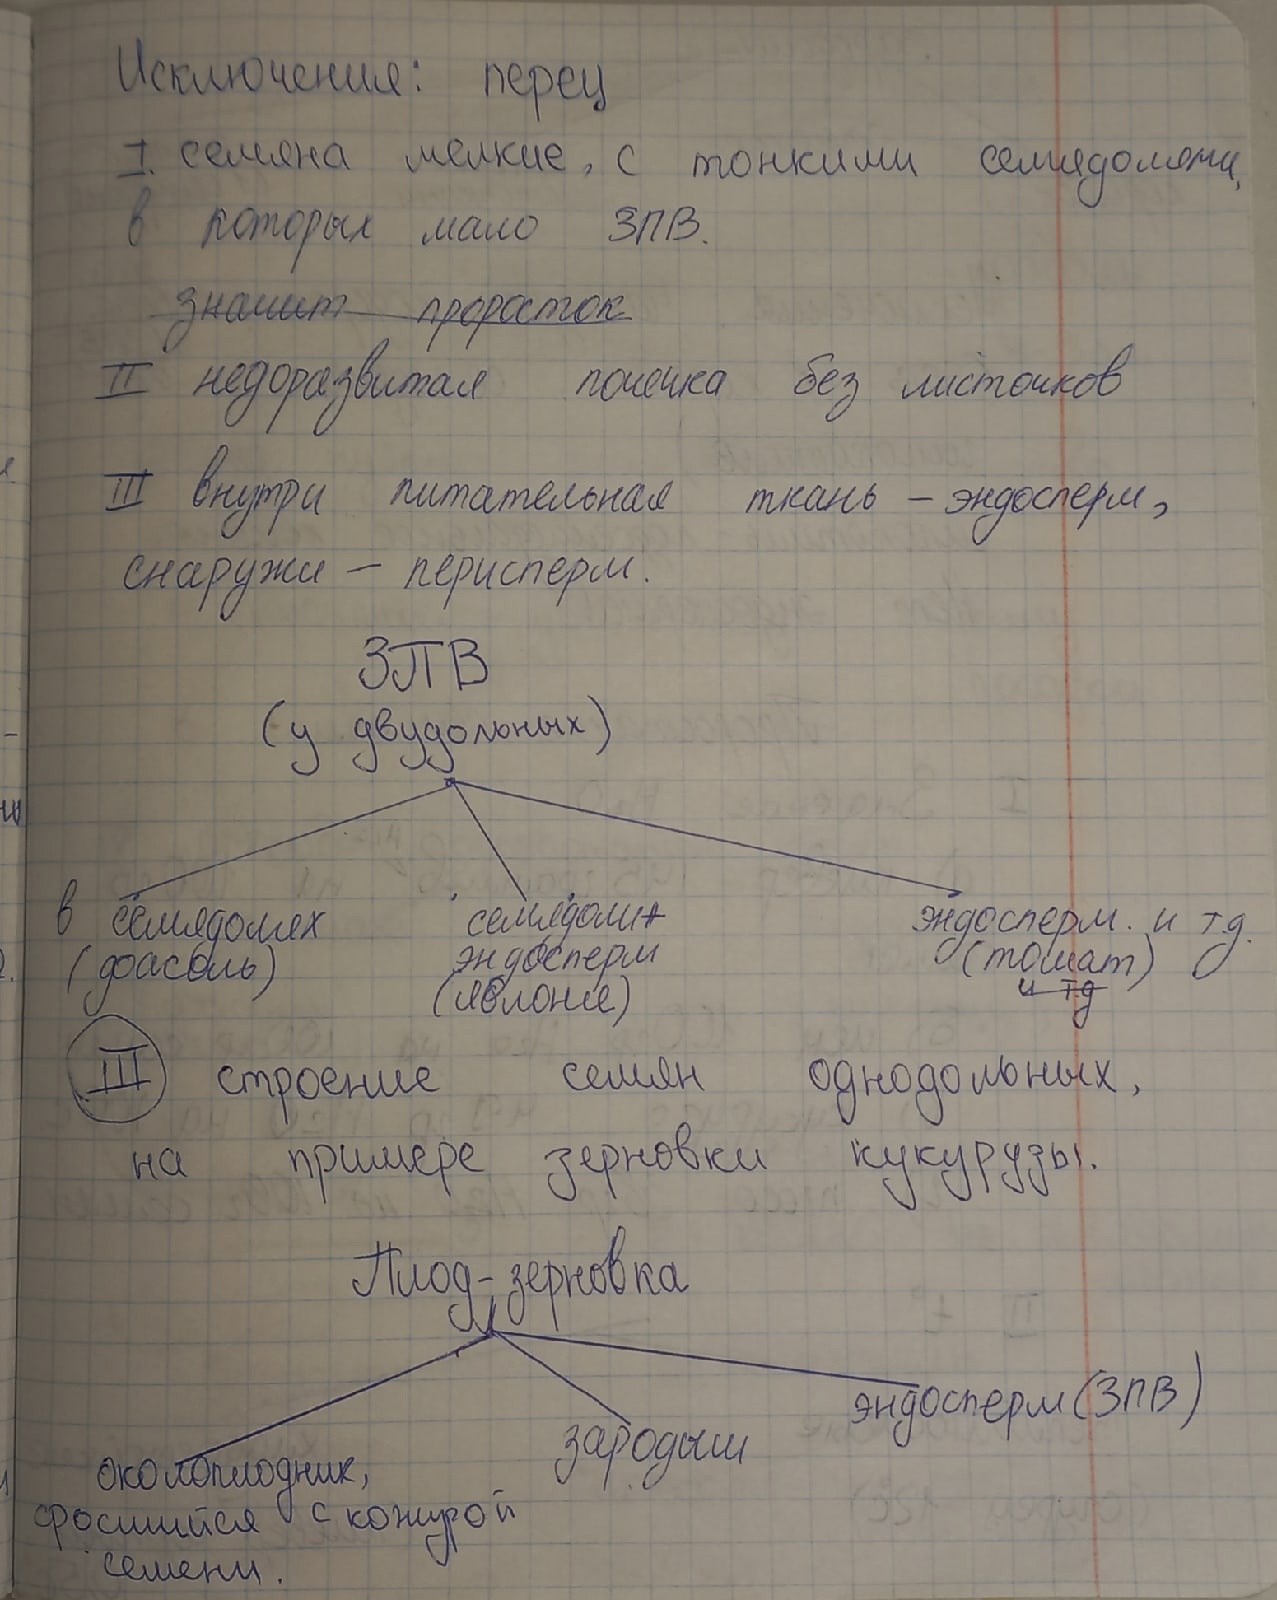 Исключения: перец
I. семена мелкие, с тонкими семядолями,
в которых мало ЗПВ.
значит проросток
II недоразвитая почечка без листочков
III внутри питательная ткань - эндосперм,
снаружи - перисперм.
ЗПВ
(у двудольных)
в семядолях
(фасоль)
семядоли+
эндосперм
(яблоня)
эндосперм. и т.д.
(томат)
и т.д
III строение семян однодольных,
на примере зерновки кукурузы.
Плод-зерновка
околоплодник,
сросшийся с кожурой
семени.
зародыш
эндосперм (ЗПВ)